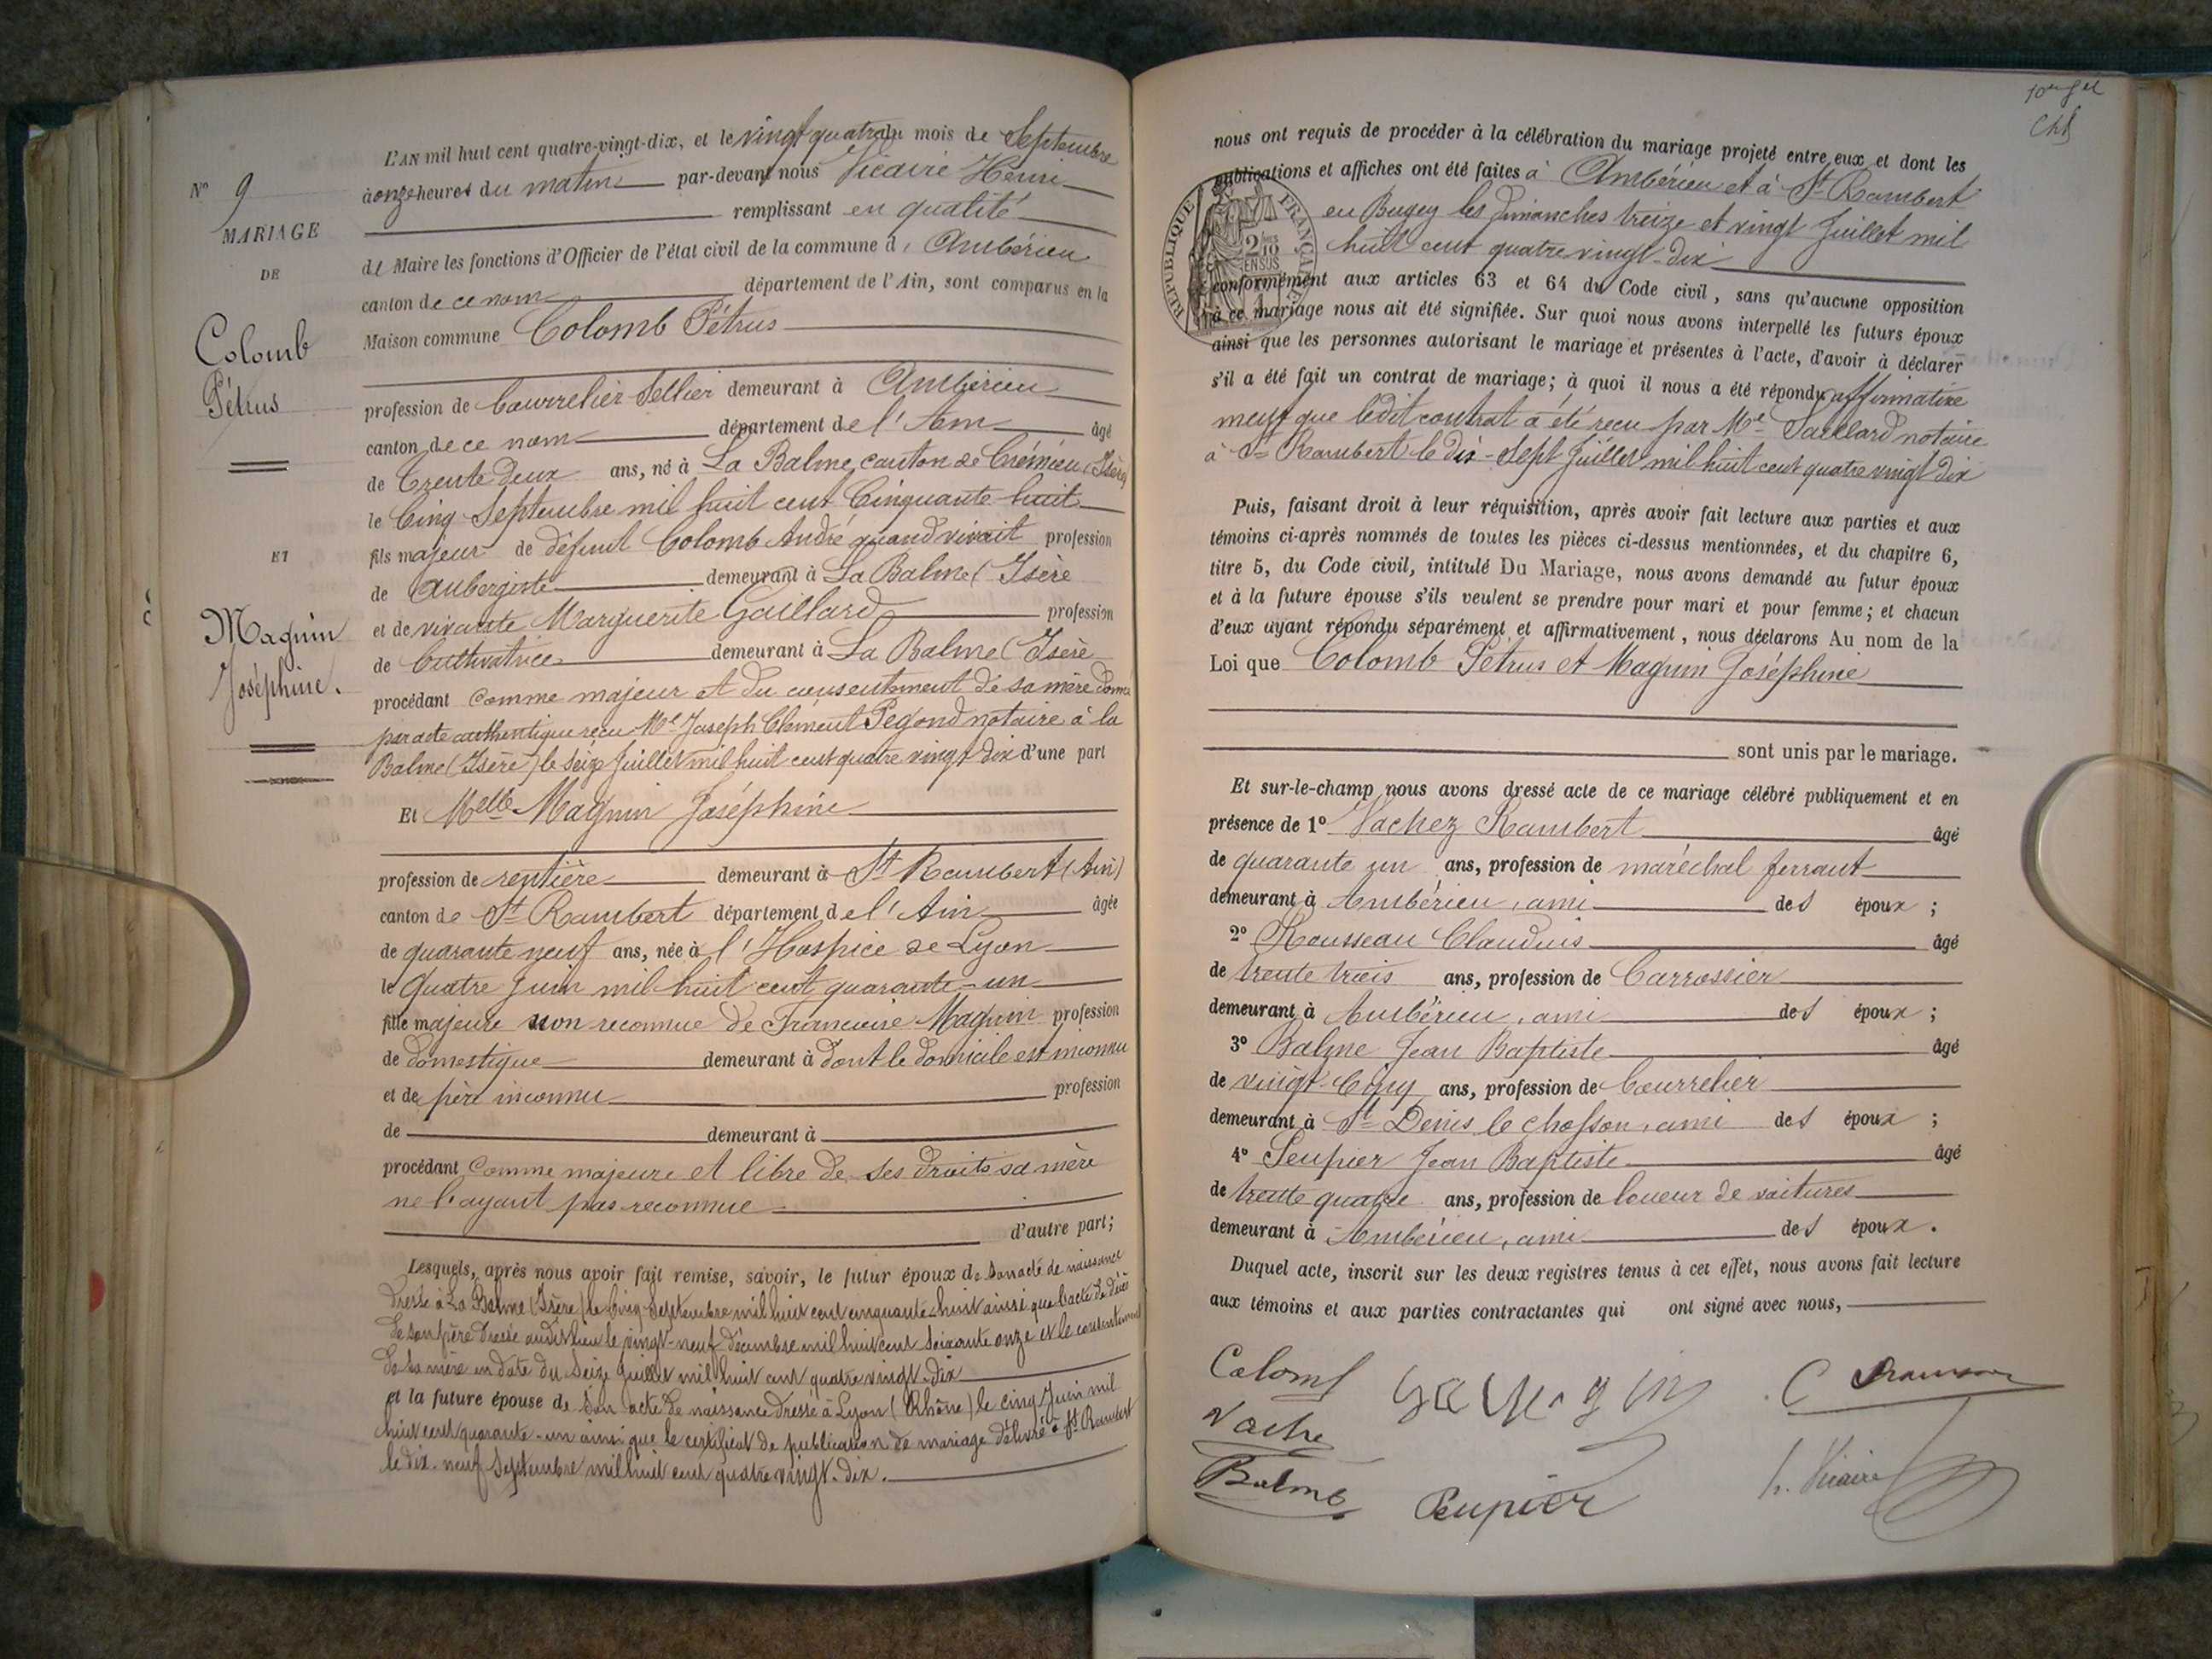 N° 9
MARIAGE
DE
Colomb
Pétrus
ET
Magnin
Joséphine.
L'AN mil huit cent quatre-vingt-dix, et le vingt quatre du mois de Septembre
à onze heures du matin par-devant nous Vicaire Henri
remplissant en qualité
de Maire les fonctions d'Officier de l'état civil de la commune d' Ambérieu
canton de ce nom département de l'Ain, sont comparus en la
Maison commune Colomb Pétrus
profession de Bourrelier Sellier demeurant à Ambérieu
canton de ce nom département de l'Ain âgé
de Trente deux ans, né à La Balme, canton de Crémieu (Isère)
le Cinq Septembre mil huit cent Cinquante huit
fils majeur de défunt Colomb André quand vivait profession
de aubergiste demeurant à La Balme (Isère
et de vivante Marguerite Gaillard profession
de Cultivatrice demeurant à La Balme (Isère
procédant comme majeur et du consentement de sa mère donné
par acte authentique reçu Me Joseph Clément Pegond notaire à la
Balme (Isère) le seize Juillet mil huit cent quatre vingt dix d'une part
Et Melle Magnin Joséphine
profession de rentière demeurant à St Rambert (Ain)
canton de St Rambert département de l'Ain âgée
de quarante neuf ans, née à l'Hospice de Lyon
le Quatre Juin mil huit cent quarante-un
fille majeure non reconnue de Francoise Magnin profession
de domestique demeurant à dont le domicile est inconnu
et de père inconnu profession
de demeurant à
procédant comme majeure et libre de ses droits sa mère
ne l'ayant pas reconnue
d'autre part;
Lesquels, après nous avoir fait remise, savoir, le futur époux de son acte de naissance
dressé à La Balme (Isère) le Cinq Septembre mil huit cent cinquante-huit ainsi que l'acte de décès
de son père dressé audit lieu le vingt-neuf décembre mil huit cent soixante onze et le consentement
de sa mère en date du Seize Juillet mil huit cent quatre vingt-dix
et la future épouse de Son acte de naissance dressé à Lyon (Rhône) le cinq Juin mil
huit cent quarante-un ainsi que le certificat de publication de mariage délivré à St Rambert
le dix-neuf Septembre mil huit cent quatre vingt-dix.
nous ont requis de procéder à la célébration du mariage projeté entre eux et dont les
publications et affiches ont été faites à Ambérieu et à St Rambert
en Bugey les Dimanches treize et vingt Juillet mil
huit cent quatre vingt-dix
RÉPUBLIQUE FRANÇAISE
conformément aux articles 63 et 64 du Code civil, sans qu'aucune opposition
à ce mariage nous ait été signifiée. Sur quoi nous avons interpellé les futurs époux
ainsi que les personnes autorisant le mariage et présentes à l'acte, d'avoir à déclarer
s'il a été fait un contrat de mariage; à quoi il nous a été répondu affirmative
ment que ledit contrat a été reçu par Me Saillard notaire
à St Rambert le dix-sept Juillet mil huit cent quatre vingt dix
Puis, faisant droit à leur réquisition, après avoir fait lecture aux parties et aux
témoins ci-après nommés de toutes les pièces ci-dessus mentionnées, et du chapitre 6,
titre 5, du Code civil, intitulé Du Mariage, nous avons demandé au futur époux
et à la future épouse s'ils veulent se prendre pour mari et pour femme; et chacun
d'eux ayant répondu séparément et affirmativement, nous déclarons Au nom de la
Loi que Colomb Pétrus et Magnin Joséphine
sont unis par le mariage.
Et sur-le-champ nous avons dressé acte de ce mariage célébré publiquement et en
présence de 1° Vachez Rambert âgé
de quarante un ans, profession de maréchal ferrant
demeurant à Ambérieu, ami des époux ;
2° Rousseau Claudius âgé
de trente trois ans, profession de Carrossier
demeurant à Ambérieu, ami des époux ;
3° Balme Jean Baptiste âgé
de vingt-Cinq ans, profession de Bourrelier
demeurant à St Denis le chosson, ami des époux ;
4° Peupier Jean Baptiste âgé
de trente quatre ans, profession de loueur de voitures
demeurant à Ambérieu, ami des époux.
Duquel acte, inscrit sur les deux registres tenus à cet effet, nous avons fait lecture
aux témoins et aux parties contractantes qui ont signé avec nous,
Colomb
Vache
Balme Peupier h. Vicaire